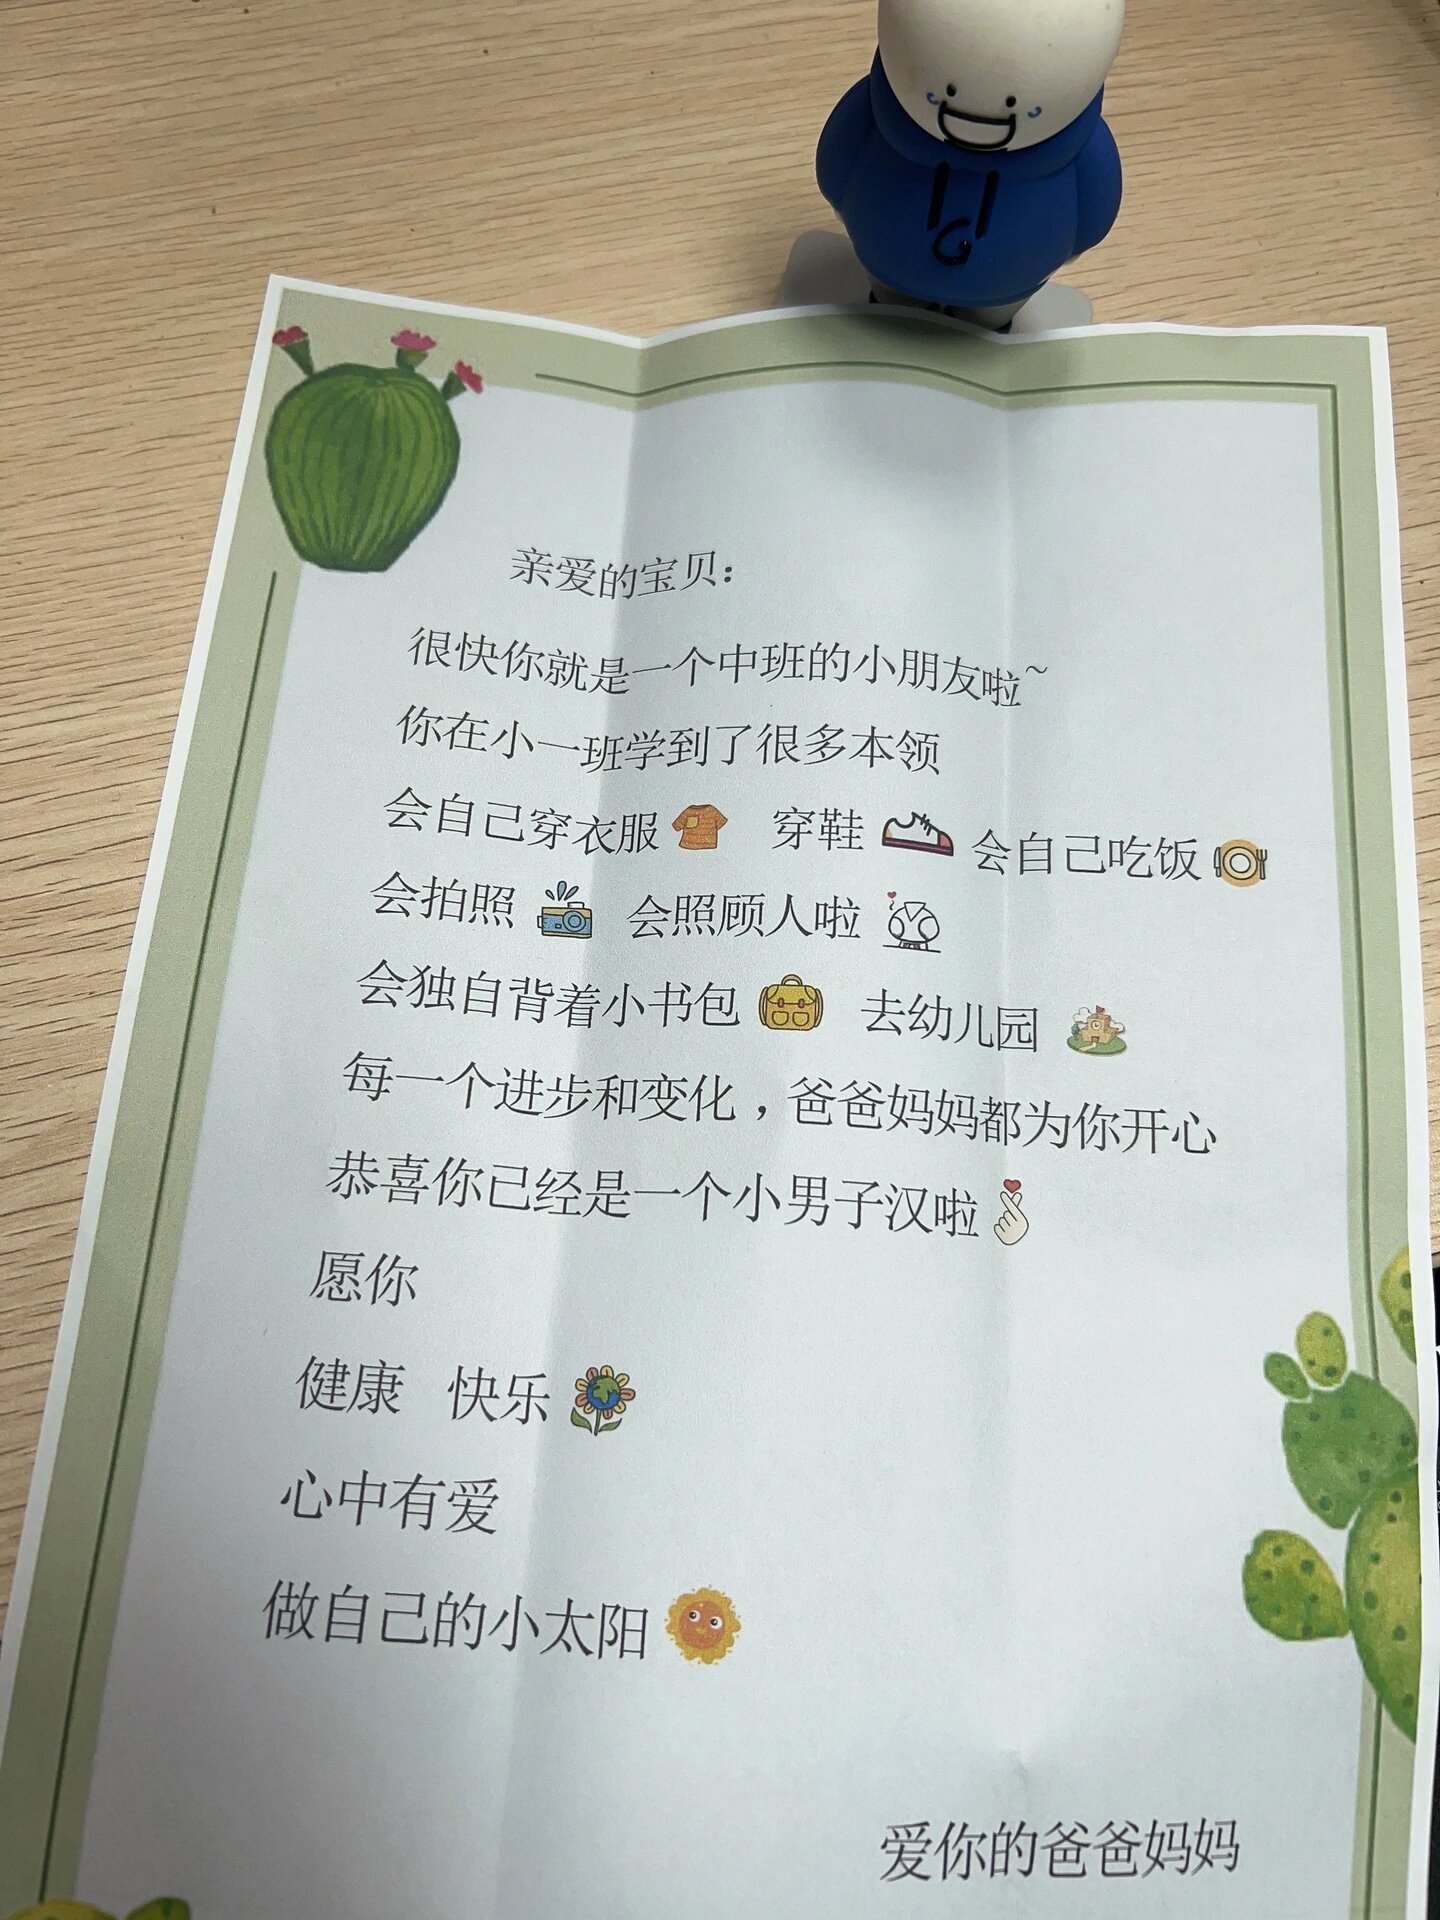 G
亲爱的宝贝：
很快你就是一个中班的小朋友啦~
你在小一班学到了很多本领
会自己穿衣服 穿鞋 会自己吃饭
会拍照 会照顾人啦
会独自背着小书包 去幼儿园
每一个进步和变化，爸爸妈妈都为你开心
恭喜你已经是一个小男子汉啦
愿你
健康 快乐
心中有爱
做自己的小太阳
爱你的爸爸妈妈